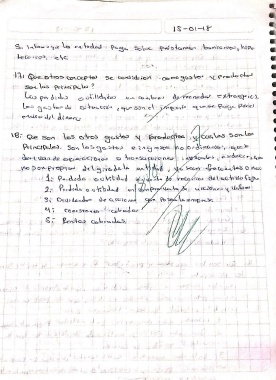 18-01-18
que la entidad paga sobre préstamos bancarios, hipo
tecarios, etc
17¿ Que otros conceptos se consideran como gastos y productos
son los principales?
Las perdidas o utilidades en cambios de monedas extranjeras
Los gastos de situacion, que son el importe que se paga por el
envio del dinero
18¿ Que son los otros gastos y productos y cuales son los
Principales. Son los gastos e ingresos no ordinarios, que se
derivan de operaciones o transacciones inusuales,
no son propias del giro de la entidad, ya sean frecuentes o no:
1: Perdida o utilidad en venta de del activo fijo
2: Perdida o utilidad en compraventa de acciones y valores
3: Dividendos de acciones que posea la empresa
4: comisiones cobradas
5: Rentas cobradas